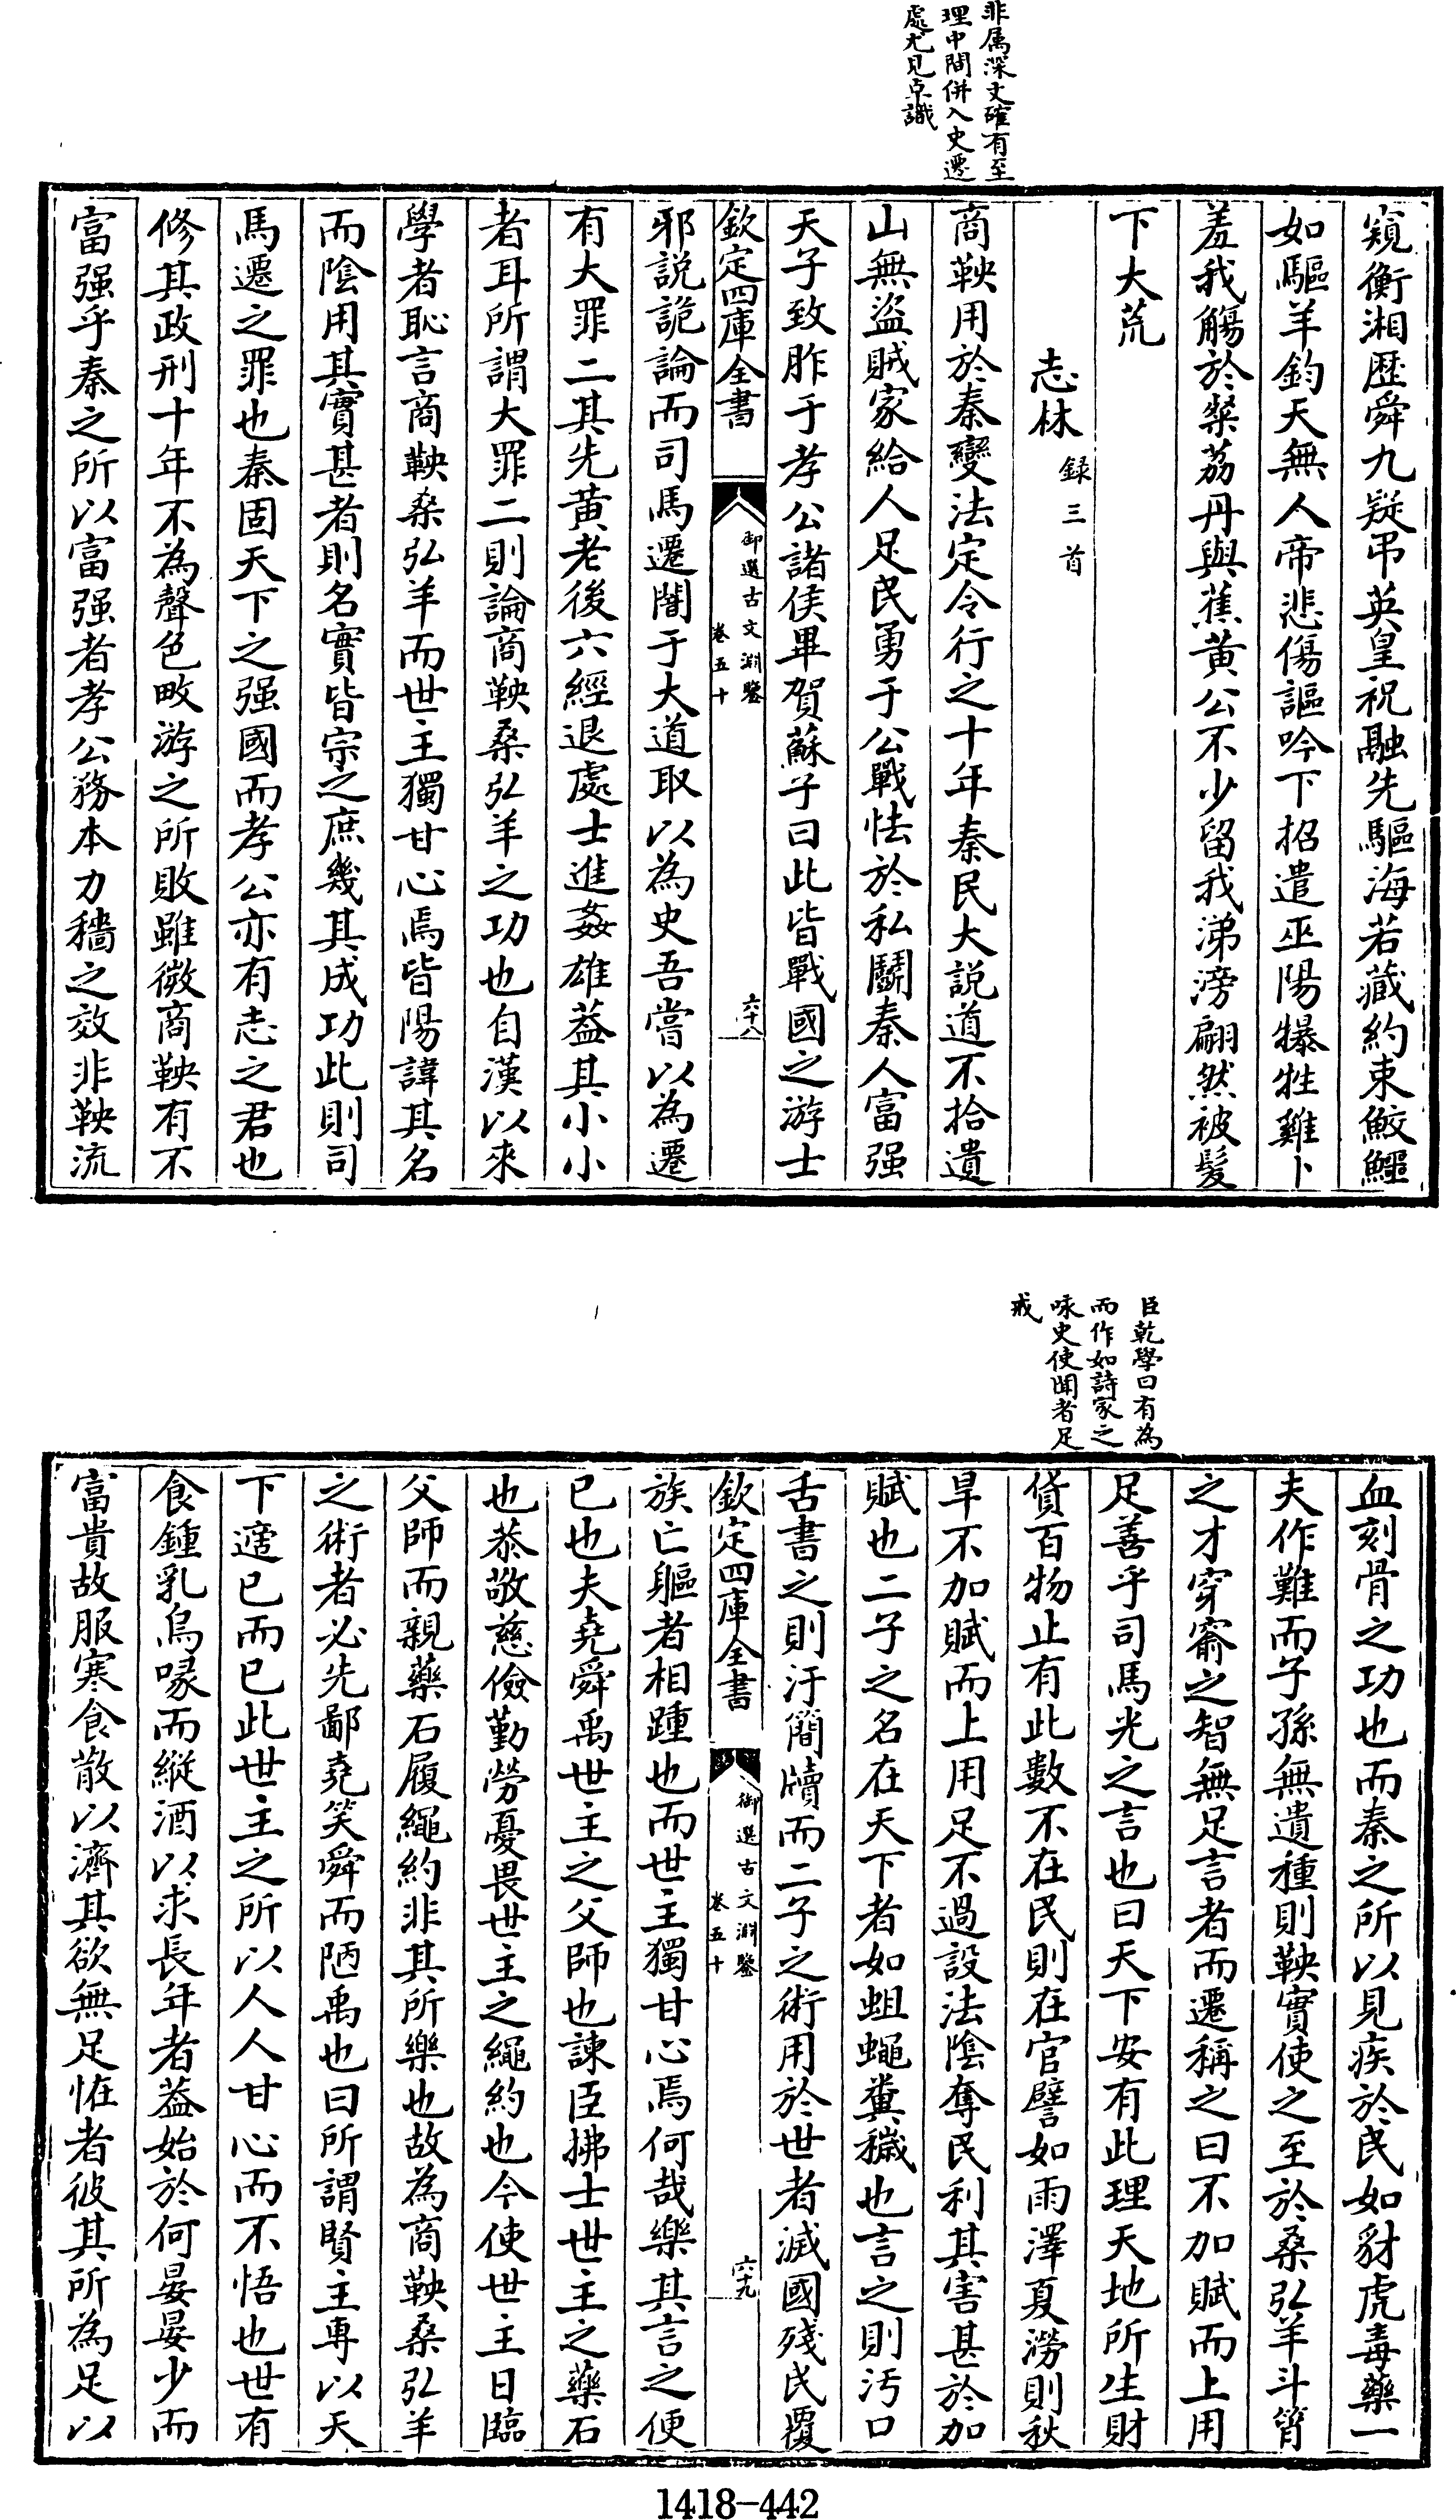 非屬深文確有至
理中間併入史遷
處尤見卓識
窺衡湘歷舜九疑弔英皇祝融先驅海若藏約束鮫鱷
如驅羊鈞天無人帝悲傷謳吟下招遣巫陽犦牲雞卜
羞我觴於粲荔丹與蕉黃公不少留我涕滂翩然被髮
下大荒
志林錄三首
商鞅用於秦變法定令行之十年秦民大說道不拾遺
山無盜賊家給人足民勇于公戰怯於私鬬秦人富强
天子致胙于孝公諸侯畢賀蘇子曰此皆戰國之游士
欽定四庫全書
御選古文淵鑒
卷五十
六十八
邪說詭論而司馬遷闇于大道取以為史吾嘗以為遷
有大罪二其先黃老後六經退處士進姦雄葢其小小
者耳所謂大罪二則論商鞅桑弘羊之功也自漢以來
學者恥言商鞅桑弘羊而世主獨甘心焉皆陽諱其名
而陰用其實甚者則名實皆宗之庶幾其成功此則司
馬遷之罪也秦固天下之强國而孝公亦有志之君也
修其政刑十年不為聲色畋游之所敗雖微商鞅有不
富强乎秦之所以富强者孝公務本力穡之效非鞅流
臣乾學曰有為
而作如詩家之
咏史使聞者足
戒
血刻骨之功也而秦之所以見疾於民如豺虎毒藥一
夫作難而子孫無遺種則鞅實使之至於桑弘羊斗筲
之才穿窬之智無足言者而遷稱之曰不加賦而上用
足善乎司馬光之言也曰天下安有此理天地所生財
貨百物止有此數不在民則在官譬如雨澤夏澇則秋
旱不加賦而上用足不過設法陰奪民利其害甚於加
賦也二子之名在天下者如蛆蠅糞穢也言之則汚口
舌書之則汙簡牘而二子之術用於世者滅國殘民覆
欽定四庫全書
御選古文淵鑒
卷五十
六十九
族亡軀者相踵也而世主獨甘心焉何哉樂其言之便
已也夫堯舜禹世主之父師也諫臣拂士世主之藥石
也恭敬慈儉勤勞憂畏世主之繩約也今使世主日臨
父師而親藥石履繩約非其所樂也故為商鞅桑弘羊
之術者必先鄙堯笑舜而陋禹也曰所謂賢主專以天
下適已而已此世主之所以人人甘心而不悟也世有
食鍾乳烏喙而縱酒以求長年者葢始於何晏晏少而
富貴故服寒食散以濟其欲無足恠者彼其所為足以
1418-442